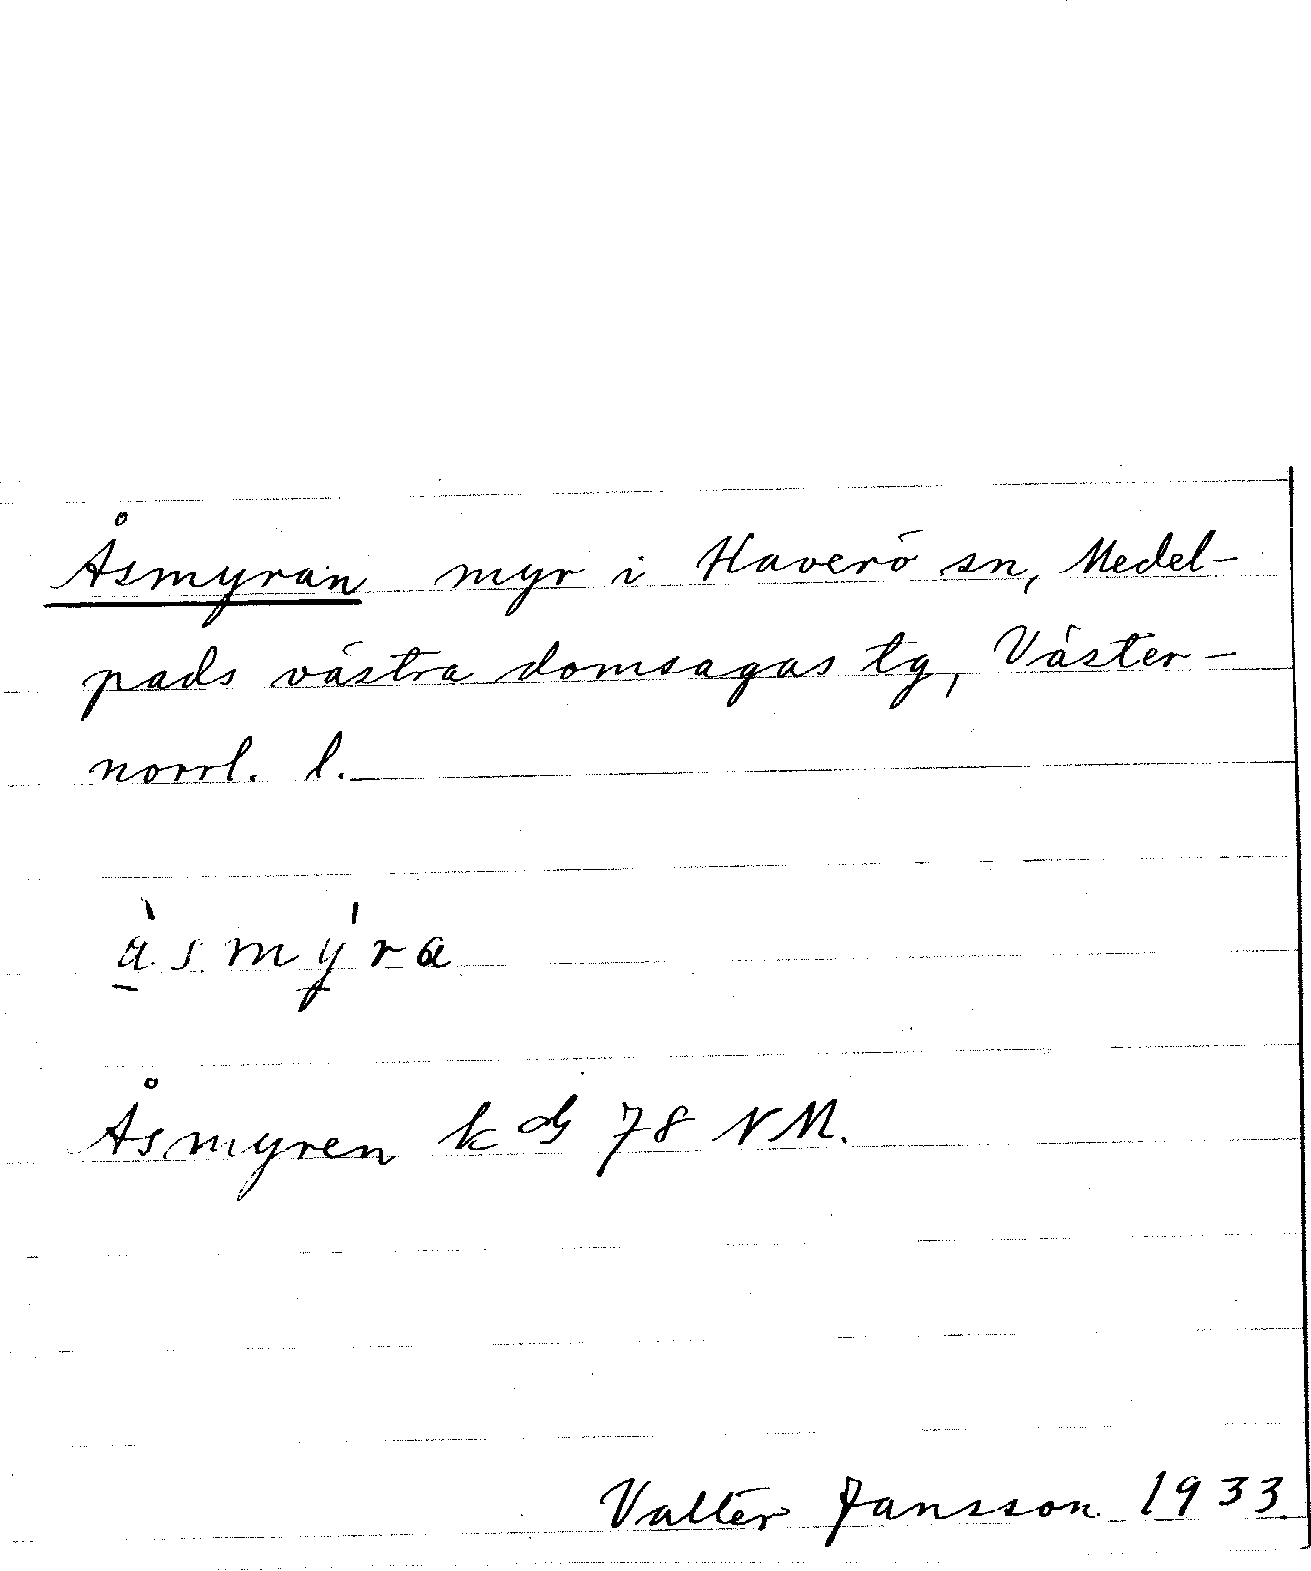 Åsmyran myr i Haverö sn, Medel-
pads västra domsagas tg, Väster-
norrl. l.
åsmýra
Åsmyren k 78 NM.
Valter Jansson 1933.